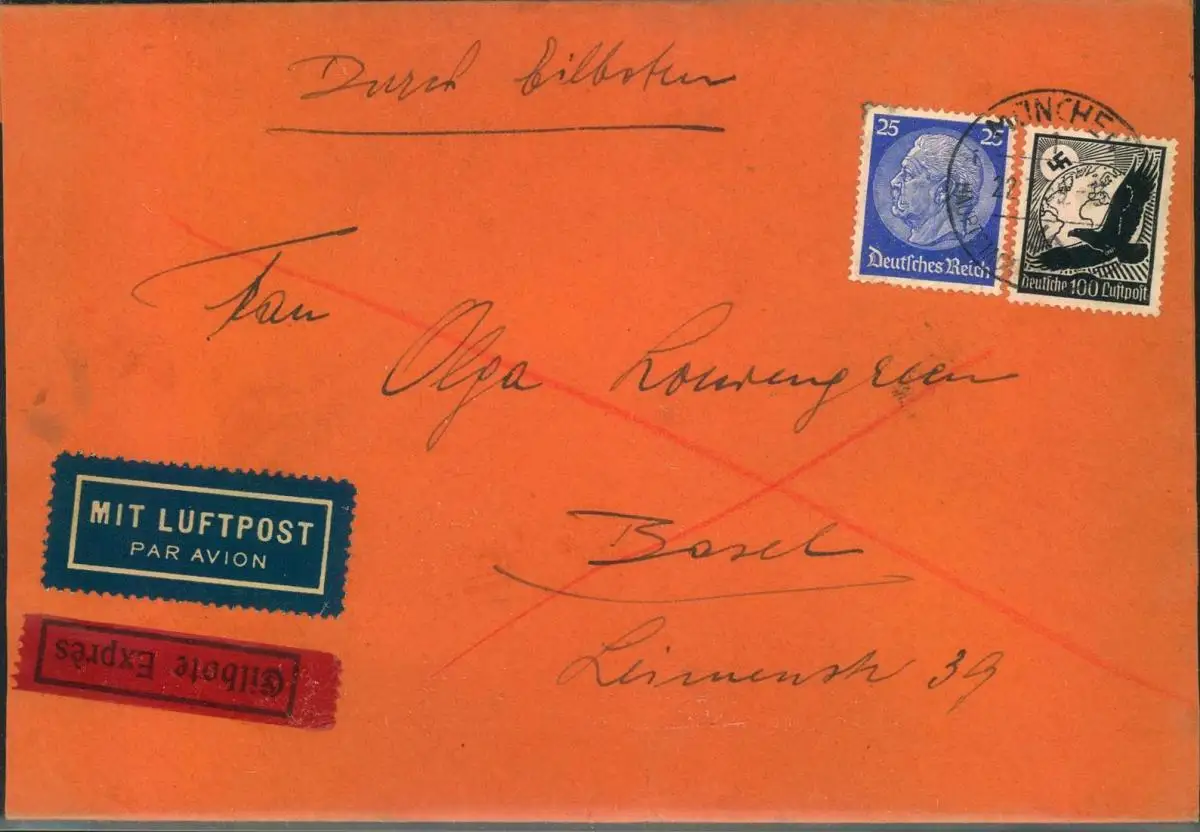 Durch Eilboten
25 25
Deutsches Reich
MÜNCHEN
22.
Deutsche 100 Luftpost
Frau
Olga Loewengreen
Basel
Leimenstr 39
MIT LUFTPOST
PAR AVION
Eilbote Exprès